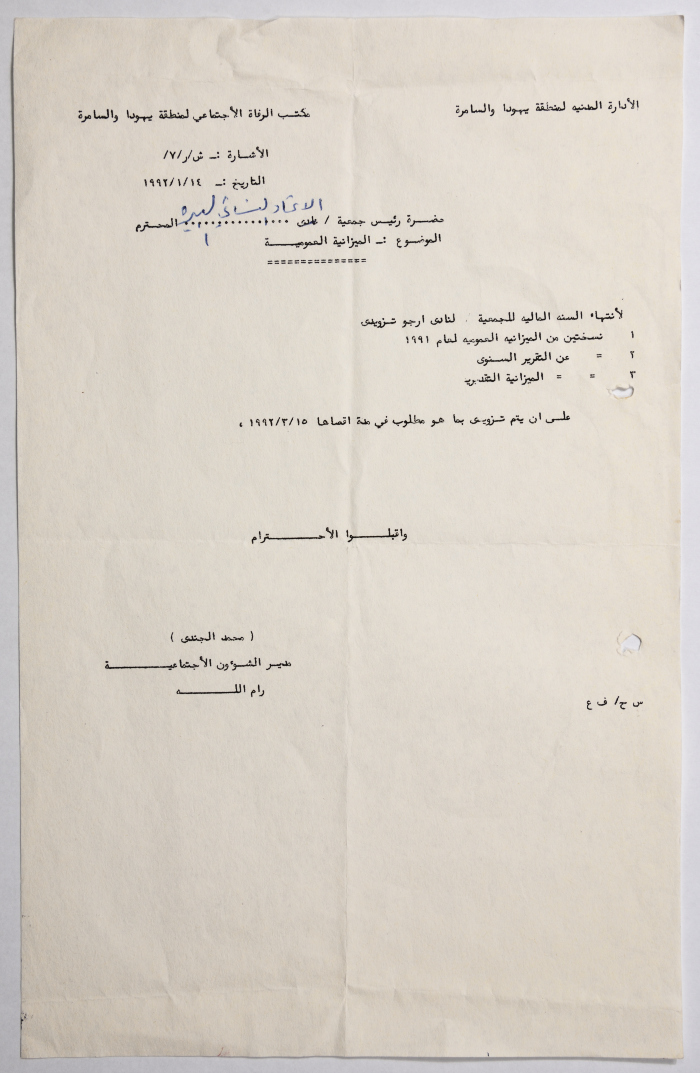 الأدارة المدنيه لمنطقة يهودا والسامرة
مكتب الرفاة الأجتماعي لمنطقة يهودا والسامرة
الأشارة :ـ ش/ر/٧/
التاريخ :ـ ١٩٩٢/١/١٤
الاتحاد النسائي البيرة
حضرة رئيس جمعية / نادى .................. المحترم
الموضوع :ـ الميزانية العموميـــة
===============
لأنتهاء السنه الماليه للجمعية . لنادى ارجو تزويدى
١ نسختين من الميزانيه العموميه لعام ١٩٩١
٢ = عن التقرير السنوى
٣ = = الميزانية التقديريه
على ان يتم تزويدى بما هو مطلوب في مدة اقصاها ١٩٩٢/٣/١٥ ،
واقبلـــــوا الأحـــــــترام
( محمد الجندى )
مدير الشوءون الأجتماعيـــــــة
رام اللـــــــه
س ج/ ف ع